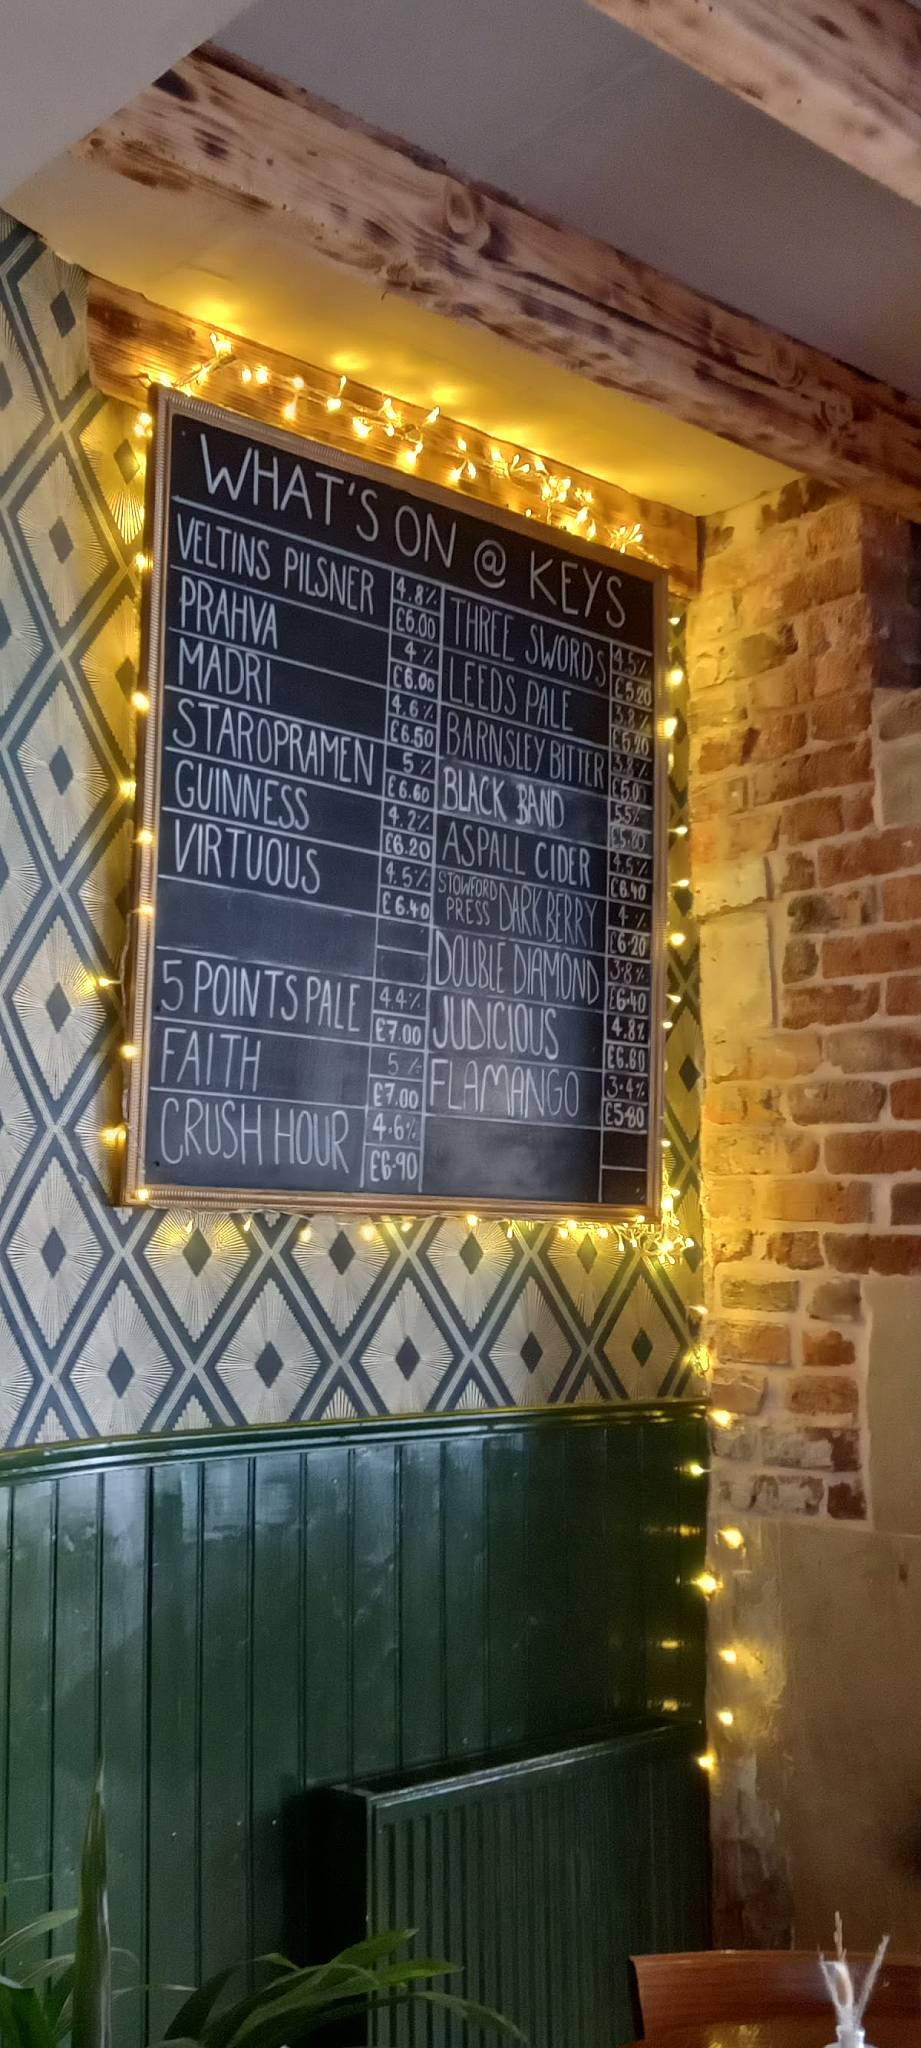 WHAT'S ON @ KEYS
VELTINS PILSNER 4.8% £6.00
PRAHVA 4% £6.00
MADRI 4.6% £6.50
STAROPRAMEN 5% £6.60
GUINNESS 4.2% £6.20
VIRTUOUS 4.5% £6.40
5 POINTS PALE 4.4% £7.00
FAITH 5% £7.00
CRUSH HOUR 4.6% £6.90
THREE SWORDS 4.5% £5.20
LEEDS PALE 3.8% £5.20
BARNSLEY BITTER 3.8% £5.00
BLACK BAND 5.5% £5.80
ASPALL CIDER 4.5% £6.40
STOWFORD PRESS DARK BERRY 4% £6.20
DOUBLE DIAMOND 3.8% £6.40
JUDICIOUS 4.8% £6.60
FLAMANGO 3.4% £5.80